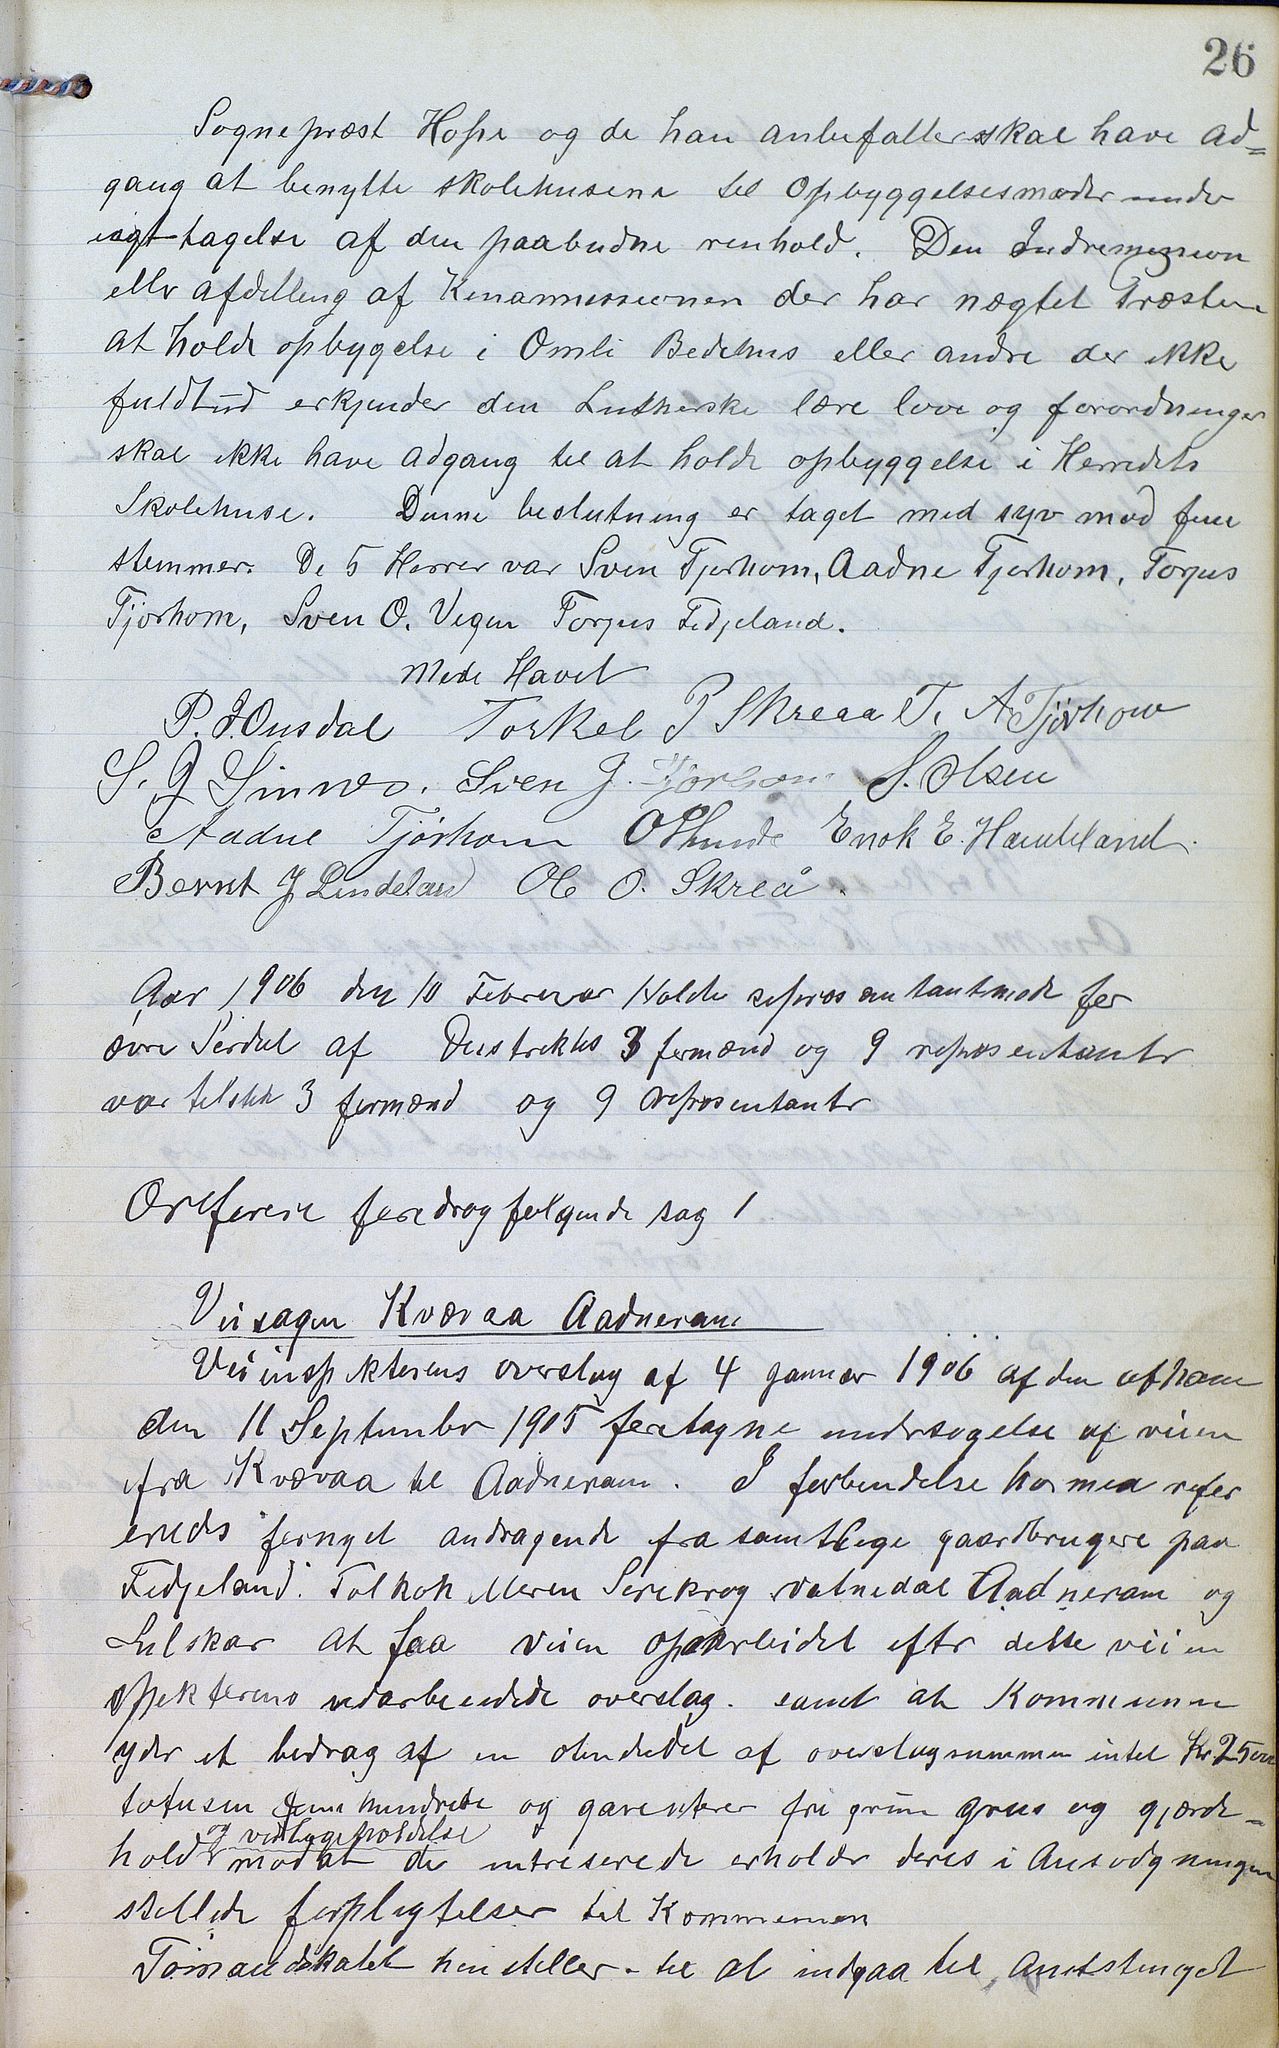 26
Sognepræst Hope og de han anbefaller skal have ad=
gang at benytte skolehusene til Opbyggelsesmøder under
iagttagelse af den paabudne renhold. Den Indremission
eller afdelling af Kinamissionen der har nægtet Præsten
at holde opbygelse i Omli Bedehus eller andre der ikke
fuldtud erkjender den Lutherske lære love og forordninger
skal ikke have adgang til at holde opbyggelse i Herredets
Skolehuse. Denne beslutning er taget med syv mod fem
stemmer. De 5 Herrer var Sven Tjørhom, Aadne Tjørhom, Torjus
Tjörhom, Sven O. Vegen Torjus Fidjeland.
Møde Hævet
P. J. Ousdal Torkel P Skreaa T. A Tjörhom
S. J Sinnes. Sven J. Tjørhom S. Olsen
Aadne Tjørhom O Thunde Enok E. Haudeland.
Bernt J Lindeland Ole O. Skreå.
Aar 1906 den 10 Februar Holdte representantmøde for
øvre Sirdal af Distriktets 3 formænd og 9 representanter
var tilsted 3 formænd og 9 representanter
Ordføreren foredrog følgende sag 1
Veisagen Kvævaa Aadneram
Veiinspektørens overslag af 4 januar 1906 af den af ham
den 11 September 1905 foretagne undersøgelse af veien
fra Kvævaa til Aadneram. I forbindelse hermed refer
eredes fornyet andragende fra samtlige gaardbrugere paa
Fidjeland. Tolkok Meren Serekrog Votnedal Aadneram og
Lilskar at faa veien oparbeidet efter dette veiin
spektørens udarbeidede overslag. samt at Kommunen
yder et bedrag af en otendedel af overslagsummen intil Kr. 2500
totusen fem hundrede og garenterer fri grun grus og gjærde=
og vedligeholdelse
hold mod at de intreserede erholder deres i Ansøgningen
stillede forpligtelser til Kommunen
Formandskabet henstiller til at indgaa til Amtstinget